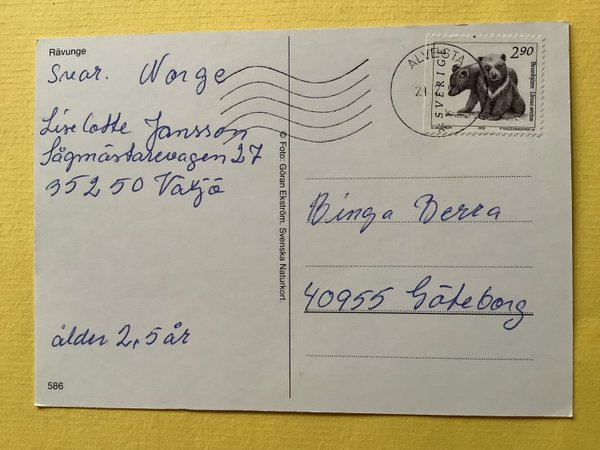 Rävunge
Svar. Norge
Liselotte Jansson
Sågmästarevägen 27
352 50 Växjö
ålder 2,5 år
586
© Foto: Göran Ekström. Svenska Naturkort.
ALVESTA
SVERIGE
2.90
Brunbjörn Ursus arctos
1993
Binga Berra
40955 Göteborg